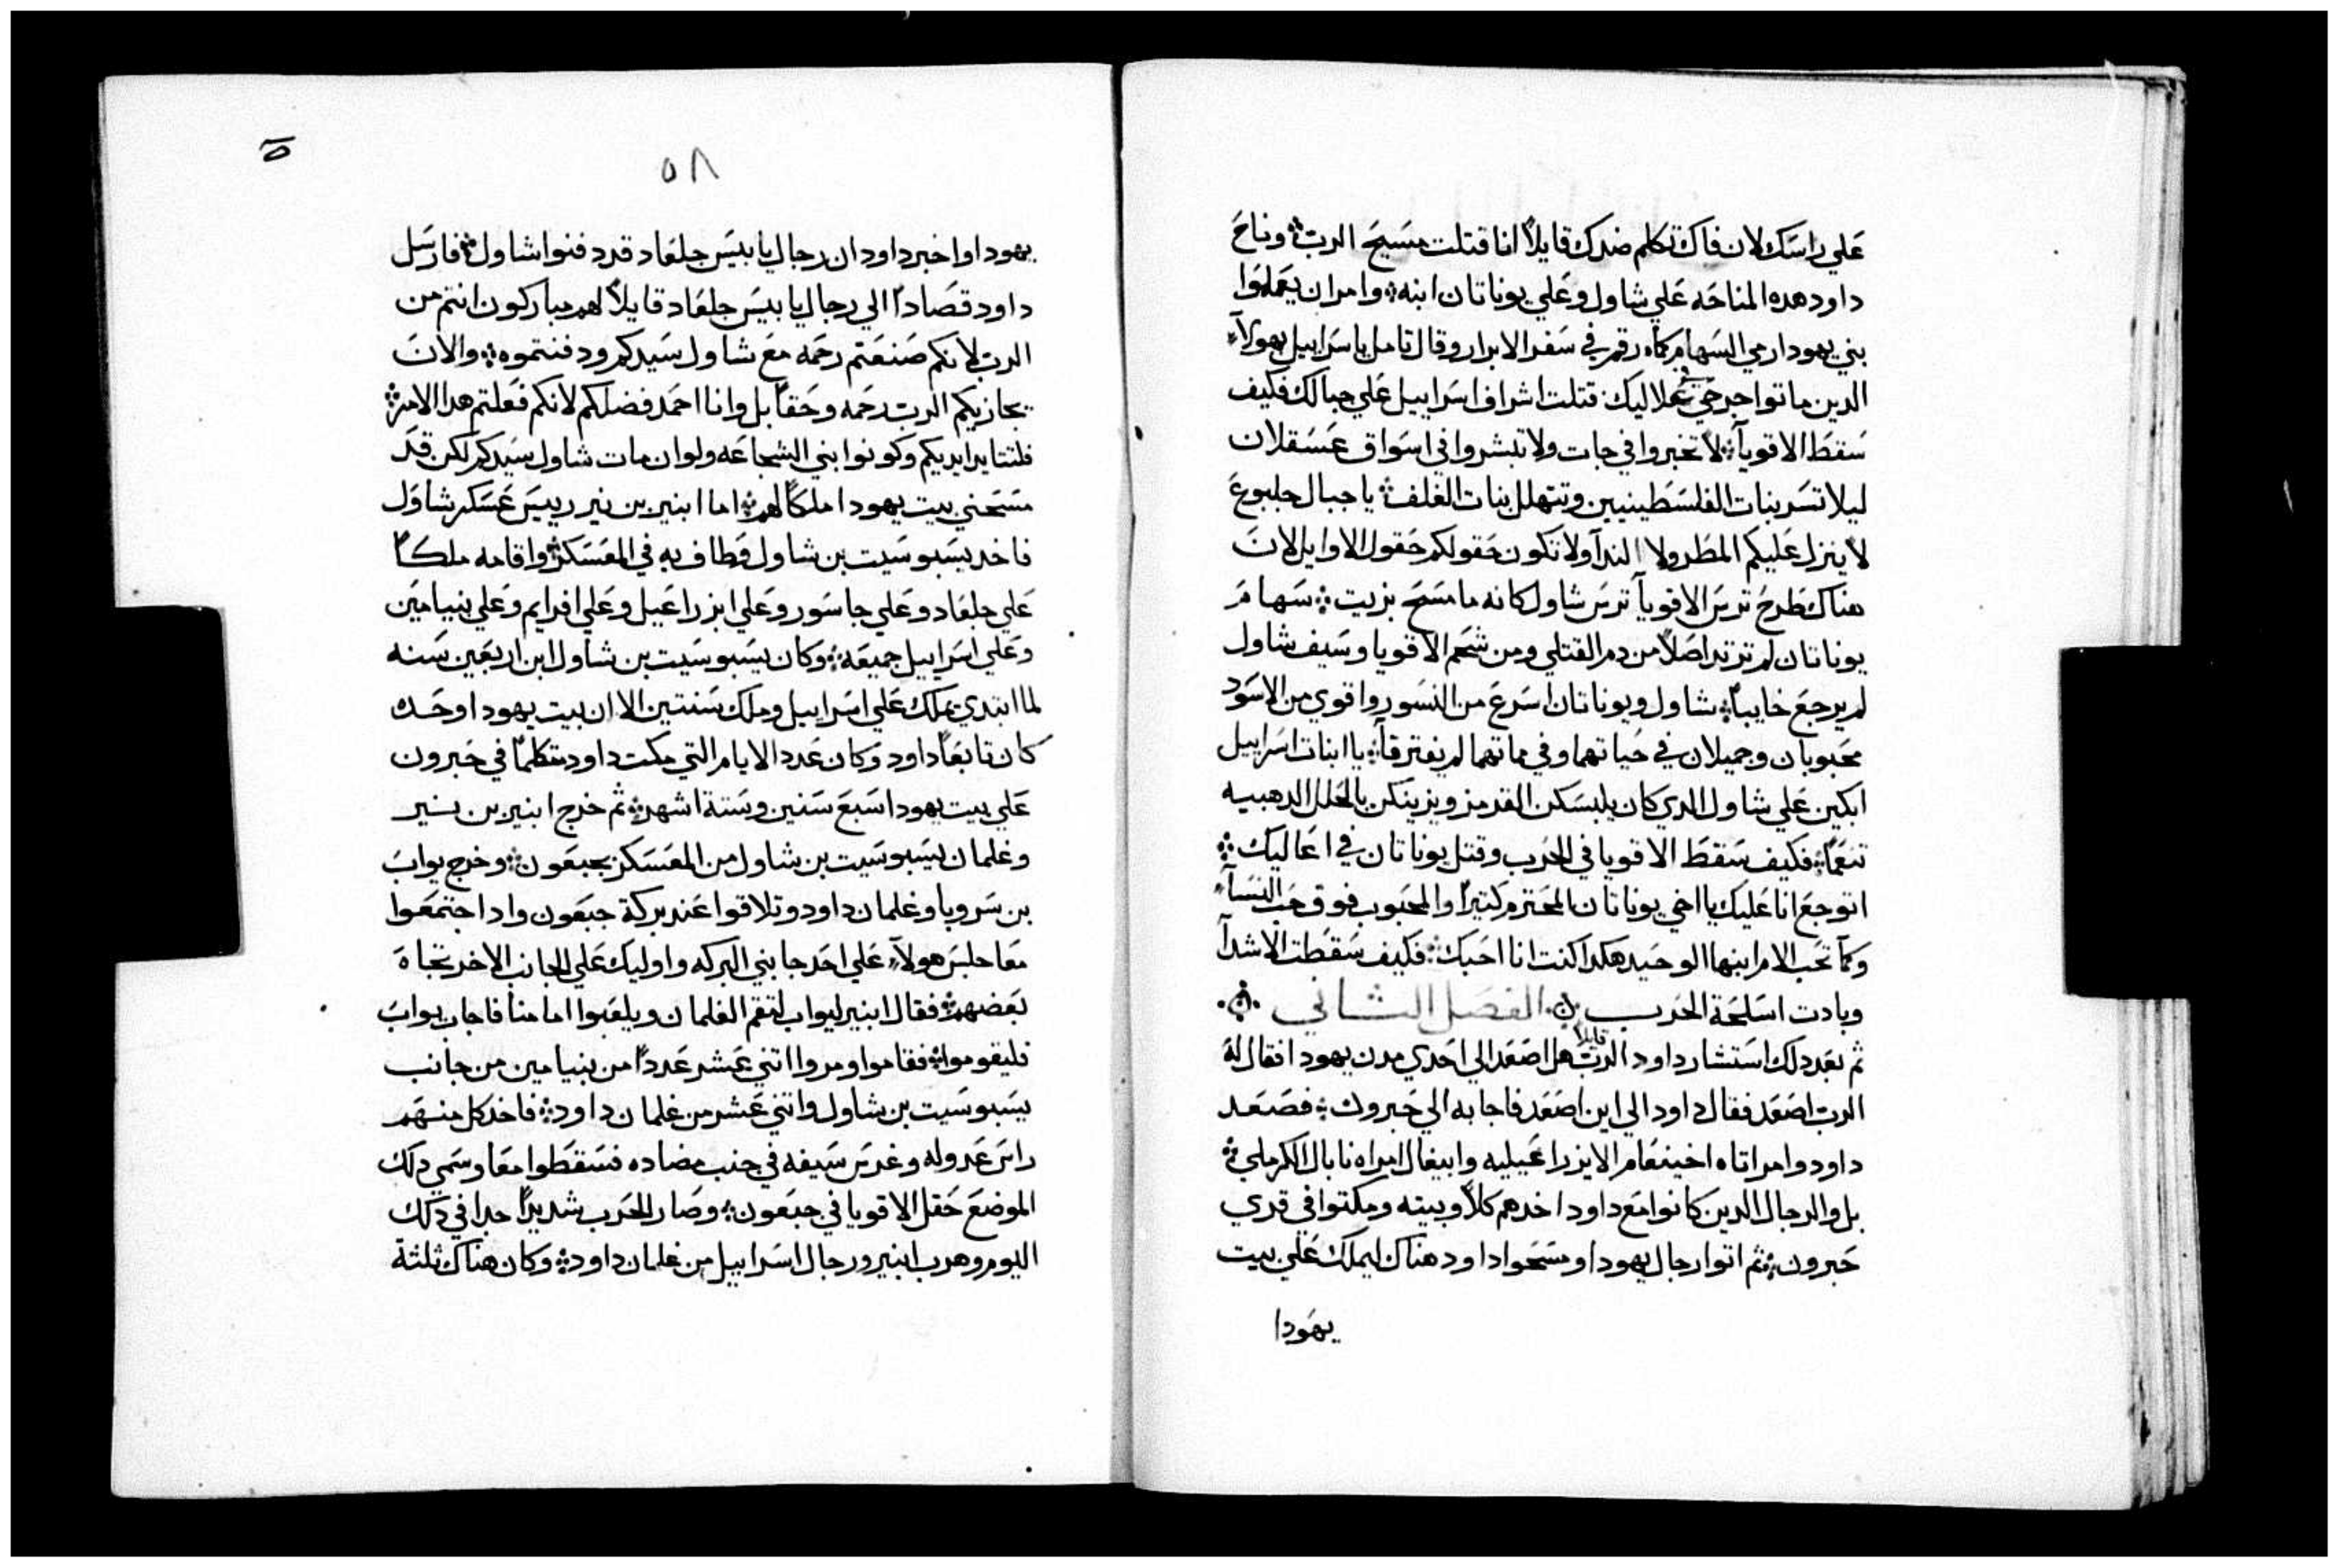 علي راسك لان فاك تكلم ضدك قايلاً انا قتلت مسيح الرب؛ وناح
داود هده المناحه علي شاول وعلي يوناتان ابنه؛ وامر ان يعملوا
بني يهودا رمي السهام كما رقم في سفر الابرار وقال تامل ياسراييل بهولآء
الدين ماتوا جرحي في علاليك قتلت اشراف اسراييل علي جبالك فكيف
سقط الاقويآ؛ لا تخبروا في جات ولا تبشروا في اسواق عسقلان
ليلا تسر بنات الفلسطينيين وتتهلل بنات الغلف؛ يا جبال جلبوع
لا ينزل عليكم المطر ولا الندآ ولا تكون حقولكم حقول الاوايل لان
هناك طرح ترس الاقويآ ترس شاول كانه ما مسح بزيت؛ سهام
يوناتان لم ترتد اصلاً من دم القتلي ومن شحم الاقويا وسيف شاول
لم يرجع خايباً؛ شاول ويوناتان اسرع من النسور واقوي من الاسود
محبوبان وجميلان في حياتهما وفي مماتهما لم يفترقآ؛ يا ابنات اسراييل
ابكين علي شاول الدي كان يلبسكن القرمز ويزينكن بالحلل الدهبيه
تنعماً؛ فكيف سقط الاقويا في الحرب وقتل يوناتان في اعاليك؛
اتوجع انا عليك يا اخي يوناتان المحترم كتيراً والمحبوب فوق حب النسآء
وكما تحب الام ابنها الوحيد هكدا كنت انا احبك؛ فكيف سقطت الاشدآ
وبادت اسلحة الحرب الفصل الثاني
ثم بعد دلك استشار داود الرب قايلاً هل اصعد الي احدي مدن يهودا فقال له
الرب اصعد فقال داود الي اين اصعد فاجابه الي حبرون؛ فصعد
داود وامراتاه اخينعام الايزراعيليه وابيغال امراه نابال الكرملي؛
بل والرجال الدين كانوا مع داود اخدهم كلاً وبيته ومكتوا في قري
حبرون؛ ثم اتوا رجال يهودا ومسحوا داود هناك ليملك علي بيت
يهودا
٥٨
يهودا واخبر داود ان رجال يابيس جلعاد قد دفنوا شاول؛ فارسل
داود قصاداً الي رجال يابيس جلعاد قايلاً لهم مباركون انتم من
الرب لانكم صنعتم رحمه مع شاول سيدكم ودفنتموه؛ والان
يجازيكم الرب رحمه وحقاً بل وانا احمد فضلكم لانكم فعلتم هدا الامر؛
فلتتايد ايديكم وكونوا بني الشجاعه ولو ان مات شاول سيدكم لكن قد
مسحني بيت يهودا ملكاً لهم؛ اما ابنير بن نير رييس عسكر شاول
فاخد يسبوسيت بن شاول وطاف به في المعسكر؛ واقامه ملكاً
علي جلعاد وعلي جاسور وعلي ايزراعيل وعلي افرايم وعلي بنيامين
وعلي اسراييل جميعه؛ وكان يسبوسيت بن شاول ابن اربعين سنه
لما ابتدي يملك علي اسراييل وملك سنتين الا ان بيت يهودا وحده
كان تابعاً داود وكان عدد الايام التي مكت داود متكلماً في حبرون
علي بيت يهودا سبع سنين وستة اشهر؛ ثم خرج ابنير بن نير
وغلمان يسبوسيت بن شاول من المعسكر بجبعون؛ وخرج يواب
بن سرويا وغلمان داود وتلاقوا عند بركة جبعون وادا اجتمعوا
معا جلس هولآء علي احد جانبي البركه واوليك علي الجانب الاخر تجاه
بعضهم؛ فقال ابنير ليواب لتقم الغلمان ويلعبوا امامنا فاجاب يواب
فليقوموا؛ فقاموا ومروا اتني عشر عدداً من بنيامين من جانب
يسبوسيت بن شاول واتني عشر من غلمان داود؛ فاخد كل منهم
راس عدوله وغرس سيفه في جنب مضاده فسقطوا معا وسمي دلك
الموضع حقل الاقويا في جبعون؛ وصار الحرب شديداً جدا في دلك
اليوم وهرب ابنير ورجال اسراييل من غلمان داود؛ وكان هناك ثلثة